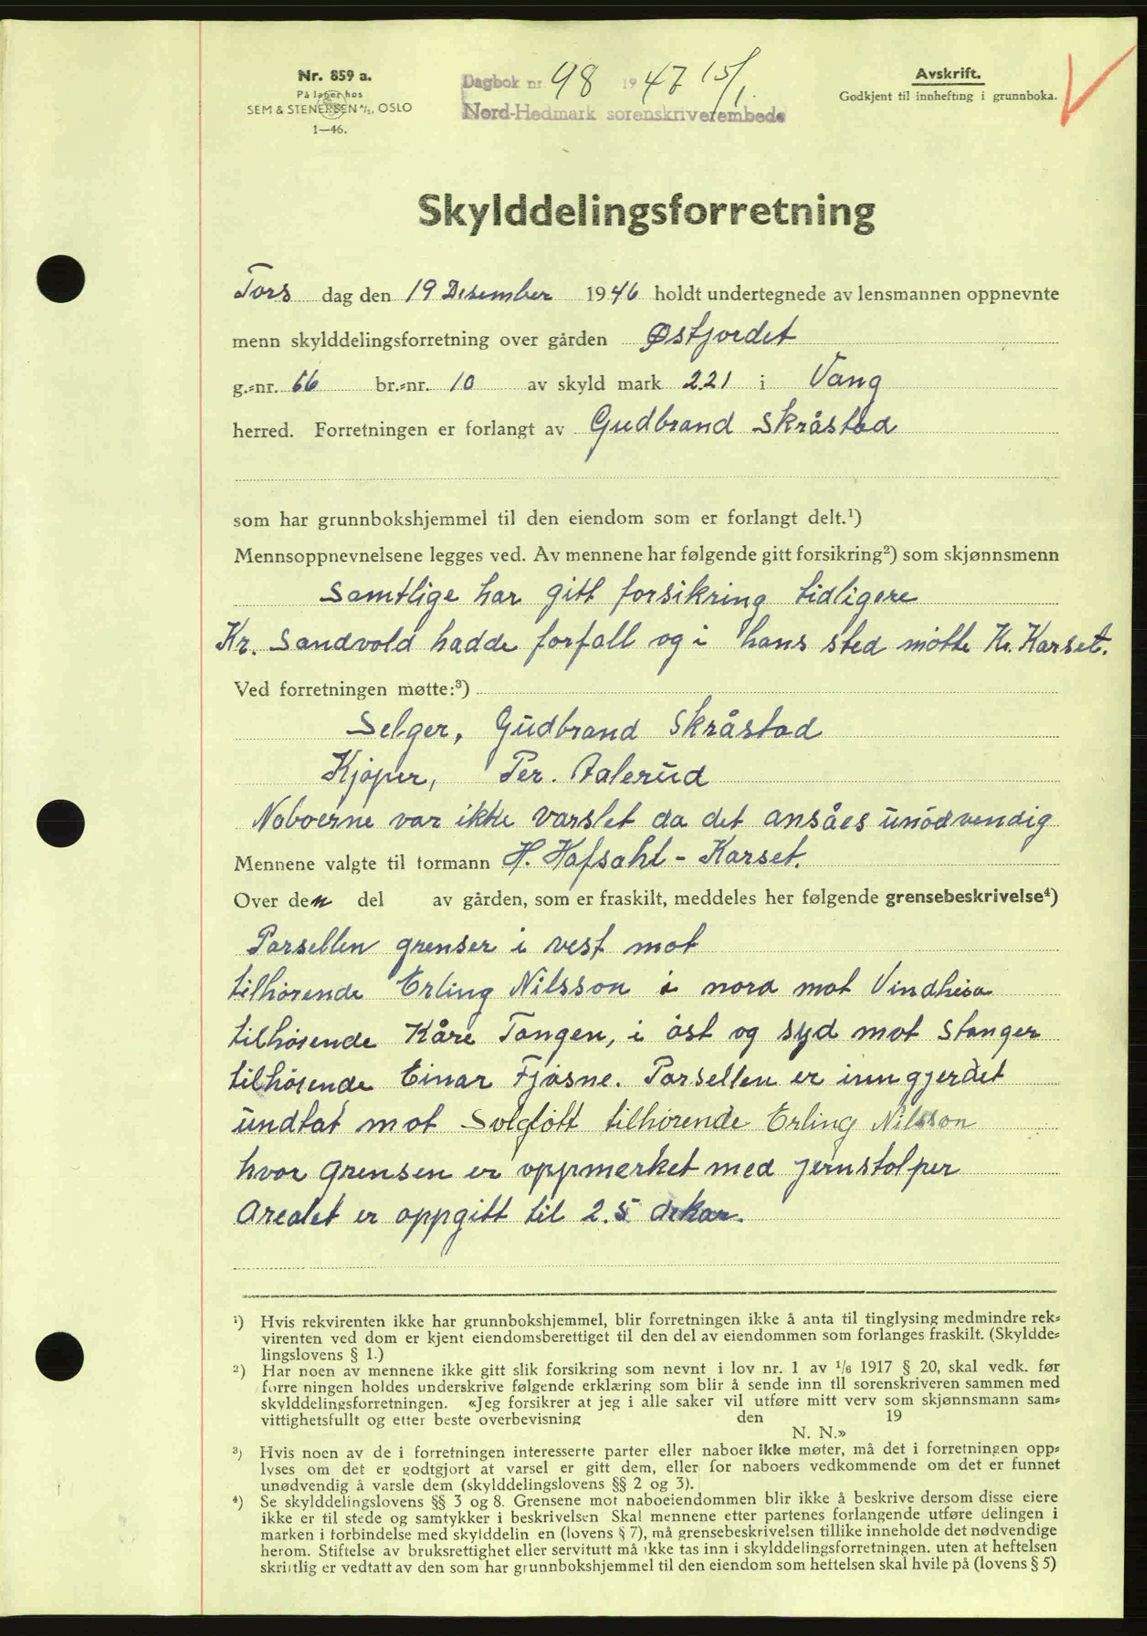 Nr. 859 a.
På lager hos
SEM & STENERSEN A/S, OSLO
1—46.
Dagbok nr. 98 1947 15/1.
Nord-Hedmark sorenskriverembede
Avskrift.
Godkjent til innhefting i grunnboka.
Skylddelingsforretning
Tors dag den 19 Desember 1946 holdt undertegnede av lensmannen oppnevnte
menn skylddelingsforretning over gården Østjordet
g.=nr. 66 br.=nr. 10 av skyld mark 2.21 i Vang
herred. Forretningen er forlangt av Gudbrand Skråstad
som har grunnbokshjemmel til den eiendom som er forlangt delt.¹)
Mennsoppnevnelsene legges ved. Av mennene har følgende gitt forsikring²) som skjønnsmenn
Samtlige har gitt forsikring tidligere
Kr. Sandvold hadde forfall og i hans sted møtte Kr. Karset.
Ved forretningen møtte:³)
Selger, Gudbrand Skråstad
Kjøper, Per. Aalerud
Naboerne var ikke varslet da det ansåes unødvendig
Mennene valgte til formann H. Hafsahl - Karset.
Over den del av gården, som er fraskilt, meddeles her følgende grensebeskrivelse⁴)
Parsellen grenser i vest mot
tilhørende Erling Nilsson i nord mot Vindheim
tilhørende Kåre Tangen, i øst og syd mot Stanger
tilhørende Einar Fjøsne. Parsellen er inngjerdet
undtat mot Solgløtt tilhørende Erling Nilsson
hvor grensen er oppmerket med jernstolper
Arealet er oppgitt til 2.5 dekar.
¹) Hvis rekvirenten ikke har grunnbokshjemmel, blir forretningen ikke å anta til tinglysing medmindre rek=
virenten ved dom er kjent eiendomsberettiget til den del av eiendommen som forlanges fraskilt. (Skyldde=
lingslovens § 1.)
²) Har noen av mennene ikke gitt slik forsikring som nevnt i lov nr. 1 av ¹/₆ 1917 § 20, skal vedk. før
forre ningen holdes underskrive følgende erklæring som blir å sende inn til sorenskriveren sammen med
skylddelingsforretningen. «Jeg forsikrer at jeg i alle saker vil utføre mitt verv som skjønnsmann sam=
vittighetsfullt og etter beste overbevisning den 19
N. N.»
³) Hvis noen av de i forretningen interesserte parter eller naboer ikke møter, må det i forretningen opp=
lyses om det er godtgjort at varsel er gitt dem, eller for naboers vedkommende om det er funnet
unødvendig å varsle dem (skylddelingslovens §§ 2 og 3).
⁴) Se skylddelingslovens §§ 3 og 8. Grensene mot naboeiendommen blir ikke å beskrive dersom disse eiere
ikke er til stede og samtykker i beskrivelsen Skal mennene etter partenes forlangende utføre delingen i
marken i forbindelse med skylddelin en (lovens § 7), må grensebeskrivelsen tillike inneholde det nødvendige
herom. Stiftelse av bruksrettighet eller servitutt må ikke tas inn i skylddelingsforretningen. uten at heftelsen
skriftlig er vedtatt av den som har grunnbokshjemmel til den eiendom som heftelsen skal hvile på (lovens § 5)